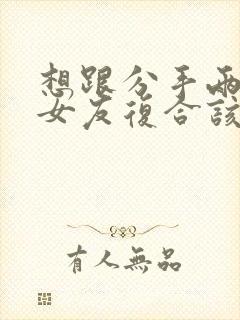 想跟分手兩
女友復合該
有人無品